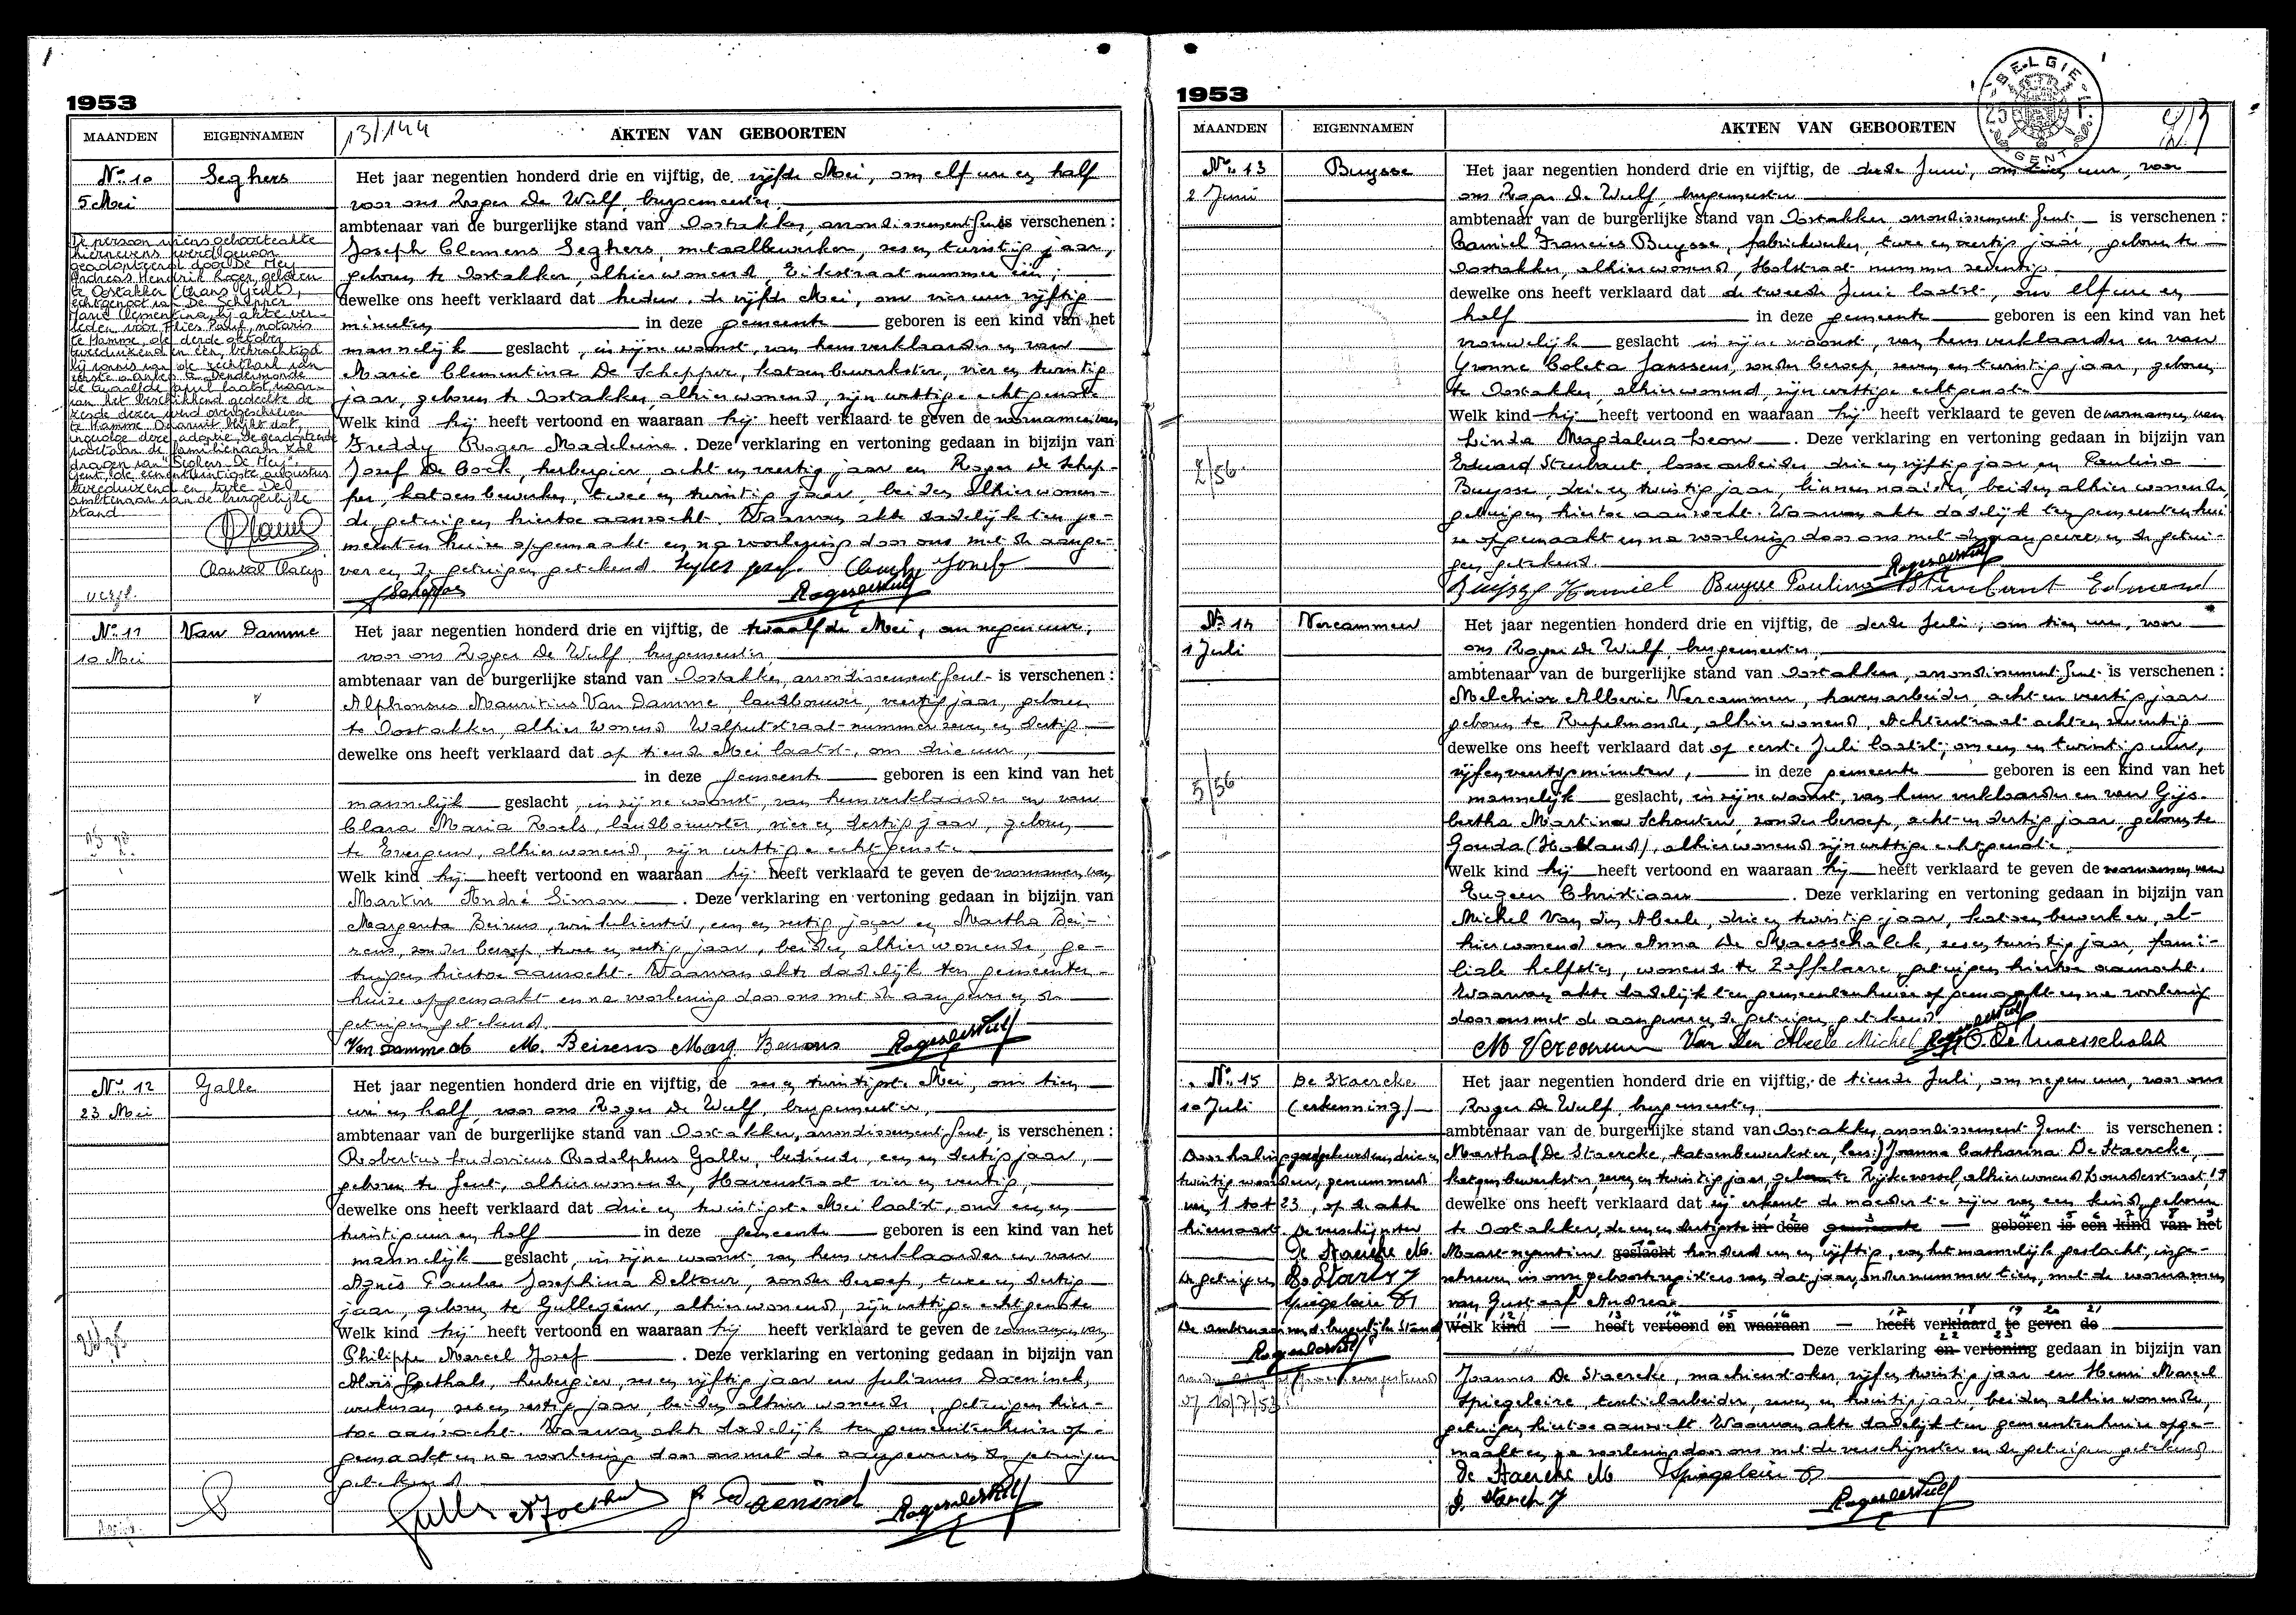 1953
MAANDEN EIGENNAMEN 13/144 AKTEN VAN GEBOORTEN
No 10 Seghers Het jaar negentien honderd drie en vijftig, de vijfde Mei, om elf ure en half
5 Mei voor ons Roger De Wulf, burgemeester
ambtenaar van de burgerlijke stand van Oostakker, arrondissement Gent is verschenen :
Joseph Clemens Seghers, metaalbewerker, zes en twintig jaar,
geboren te Oostakker, alhier wonend, Eikstraat nummer één,
dewelke ons heeft verklaard dat heden, de vijfde Mei, om vier uur vijftig
minuten in deze gemeente geboren is een kind van het
mannelijk geslacht, in zijne woonst, van hem verklaarder en van
Marie Clementina De Schepper, katoenbewerkster, vier en twintig
jaar, geboren te Oostakker, alhier wonend, zijn wettige echtgenote
Welk kind hij heeft vertoond en waaraan hij heeft verklaard te geven de voornamen van
Freddy Roger Madeleine. Deze verklaring en vertoning gedaan in bijzijn van
Jozef De Cock, herbergier, acht en veertig jaar en Roger De Schep-
per, katoenbewerker, twee en twintig jaar, beiden alhier wonen-
de getuigen hiertoe aanzocht. Waarvan akte dadelijk ten ge-
meentenhuize opgemaakt en na voorlezing door ons met de aange-
ver en de getuigen getekend.
De persoon wiens geboorteakte
hiernevens werd gewoon
geadopteerd door De Mey
Andreas Hendrik Roger, geboren
te Oostakker (thans Gent),
echtgenoot van De Schepper
Marie Clementina, bij akte ver-
leden vóór Flies Paul, notaris
te Hamme, de derde oktober
tweeduizend en één, bekrachtigd
bij vonnis van de rechtbank van
eerste aanleg te Dendermonde
de twaalfde april laatst, waar-
van het beschikkend gedeelte de
zesde dezer werd overgeschreven
te Hamme. Daaruit blijkt dat,
ingevolge deze adoptie, de geadopteerde
voortaan de familienaam zal
dragen van "Seghers-De Mey".
Gent, de eenentwintigste augustus
tweeduizend en twee. De
ambtenaar van de burgerlijke
stand
Chantal Claeys
No 11 Van Damme Het jaar negentien honderd drie en vijftig, de twaalfde Mei, om negen ure,
10 Mei voor ons Roger De Wulf, burgemeester
ambtenaar van de burgerlijke stand van Oostakker, arrondissement Gent is verschenen :
Alphonsus Mauritius Van Damme, landbouwer, veertig jaar, geboren
te Oostakker, alhier wonend Walputstraat nummer zeven en dertig
dewelke ons heeft verklaard dat op tiende Mei laatst, om drie uur,
in deze gemeente geboren is een kind van het
mannelijk geslacht, in zijne woonst, van hem verklaarder en van
Clara Maria Roels, landbouwster, vier en dertig jaar, geboren
te Evergem, alhier wonend, zijn wettige echtgenote
Welk kind hij heeft vertoond en waaraan hij heeft verklaard te geven de voornamen van
Martin André Simon. Deze verklaring en vertoning gedaan in bijzijn van
Margareta Beirens, winkelierster, een en zestig jaar en Martha Bei-
rens, zonder beroep, twee en zestig jaar, beiden alhier wonende, ge-
tuigen hiertoe aanzocht. Waarvan akte dadelijk ten gemeenten-
huize opgemaakt en na voorlezing door ons met de aangever en de
getuigen getekend
Van Damme A M. Beirens Marg. Beirens Roger De Wulf
No 12 Galle Het jaar negentien honderd drie en vijftig, de zes en twintigste Mei, om tien
23 Mei ure en half, voor ons Roger De Wulf, burgemeester,
ambtenaar van de burgerlijke stand van Oostakker, arrondissement Gent, is verschenen :
Robertus Ludovicus Rodolphus Galle, bediende, een en dertig jaar,
geboren te Gent, alhier wonende, Havenstraat vier en veertig,
dewelke ons heeft verklaard dat drie en twintigste Mei laatst, om een en
twintig uur en half in deze gemeente geboren is een kind van het
mannelijk geslacht, in zijne woonst, van hem verklaarder en van
Agnès Paula Josephina Deltour, zonder beroep, twee en dertig
jaar, geboren te Gullegem, alhier wonend, zijn wettige echtgenote
Welk kind hij heeft vertoond en waaraan hij heeft verklaard te geven de voornamen van
Philippe Marcel Jozef. Deze verklaring en vertoning gedaan in bijzijn van
Aloïs Goethals, herbergier, zes en vijftig jaar en Julianus Daeninck,
werkman, zes en zestig jaar, beiden alhier wonende, getuigen hier-
toe aanzocht. Waarvan akte dadelijk ten gemeentenhuize op-
gemaakt en na voorlezing door ons met de aangever en de getuigen
getekend
1953
MAANDEN EIGENNAMEN AKTEN VAN GEBOORTEN
BELGIE GENT
No 13 Buysse Het jaar negentien honderd drie en vijftig, de derde Juni, om tien uur, voor
2 Juni ons Roger De Wulf, burgemeester
ambtenaar van de burgerlijke stand van Oostakker, arrondissement Gent is verschenen :
Camiel Francies Buysse, fabriekwerker, twee en veertig jaar, geboren te
Oostakker, alhier wonend, Holstraat nummer zeventig
dewelke ons heeft verklaard dat de tweede Juni laatst, om elf ure en
half in deze gemeente geboren is een kind van het
vrouwelijk geslacht in zijne woonst, van hem verklaarder en van
Yvonne Coleta Janssens, zonder beroep, zeven en twintig jaar, geboren
te Oostakker, alhier wonend, zijn wettige echtgenote
Welk kind hij heeft vertoond en waaraan hij heeft verklaard te geven de voornamen van
Linda Magdalena Leon. Deze verklaring en vertoning gedaan in bijzijn van
2/56
Eduard Steurbaut, losse arbeider, drie en vijftig jaar en Paulina
Buysse, drie en twintig jaar, linnennaaister, beiden alhier wonende,
getuigen hiertoe aanzocht. Waarvan akte dadelijk ten gemeentenhui
ze opgemaakt en na voorlezing door ons met de aangever en de getui-
gen getekend.
Buysse Kamiel Buysse Paulina Steurbaut Edmond
No 14 Vercammen Het jaar negentien honderd drie en vijftig, de derde Juli, om tien ure, voor
1 Juli ons Roger De Wulf burgemeester,
ambtenaar van de burgerlijke stand van Oostakker, arrondissement Gent is verschenen :
Melchior Alberic Vercammen, havenarbeider, acht en veertig jaar
geboren te Rupelmonde, alhier wonend, Achtenstraat acht en zeventig
dewelke ons heeft verklaard dat op eerste Juli laatst, om een en twintig uur,
vijf en veertig minuten, in deze gemeente geboren is een kind van het
5/56
mannelijk geslacht, in zijne woonst, van hem verklaarder en van Gijs-
bertha Martina Schouten, zonder beroep, acht en dertig jaar, geboren te
Gouda (Holland), alhier wonend zijn wettige echtgenote
Welk kind hij heeft vertoond en waaraan hij heeft verklaard te geven de voornamen van
Eugeen Christiaan. Deze verklaring en vertoning gedaan in bijzijn van
Michel Van den Abeele, drie en twintig jaar, katoenbewerker, al-
hier wonend en Anna De Maesschalck, zes en twintig jaar, fami-
liale helpster, wonende te Zaffelaere, getuigen hiertoe aanzocht.
Waarvan akte dadelijk ten gemeentenhuize opgemaakt en na voorlezing
door ons met de aangever en de getuigen getekend
M Vercammen Van Den Abeele Michel A. De Maesschalck
No 15 De Staercke Het jaar negentien honderd drie en vijftig, de tiende Juli, om negen uur, voor ons
10 Juli (erkenning) Roger De Wulf, burgemeester
ambtenaar van de burgerlijke stand van Oostakker arrondissement Gent is verschenen :
Martha (De Staercke, katoenbewerkster, lees:) Joanna Catharina De Staercke,
katoenbewerkster, zeven en twintig jaar, geboren te Rijkevorsel, alhier wonend Lourdesstraat, 19
dewelke ons heeft verklaard dat zij erkent de moeder te zijn van een kind, geboren
te Oostakker, de een en dertigste in deze gemeente geboren is een kind van het
Maart negentien geslacht honderd een en vijftig, van het mannelijk geslacht, inge-
schreven in onze geboorteregisters van dat jaar, onder nummer tien, met de voornamen
van Gustaaf Andrea
Welk kind heeft vertoond en waaraan heeft verklaard te geven de
Deze verklaring en vertoning gedaan in bijzijn van
Joannes De Staercke, machiendoker, vijf en twintig jaar en Henri Marcel
Spiegeleire, textielarbeider, zeven en twintig jaar, beiden alhier wonende,
getuigen hiertoe aanzocht. Waarvan akte dadelijk ten gemeentenhuize opge-
maakt en na voorlezing door ons met de verschijnster en de getuigen getekend
Doorhaling goedgekeurd van drie en
twintig woorden, genummerd
van 1 tot 23, op de akte
hiernaast. De verschijnster
De Staercke M.
De getuigen
Spiegeleire
De ambtenaar van de burgerlijke Stand
10/7/53
De Staercke M Spiegeleire